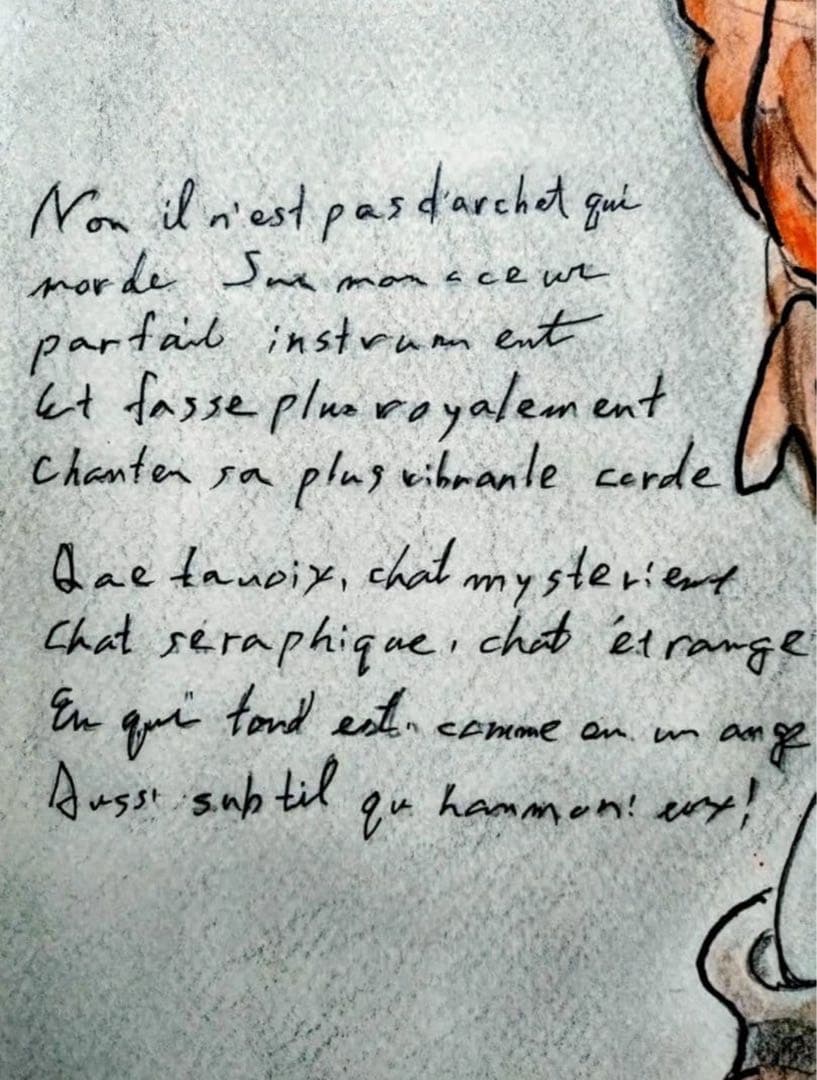 Non il n'est pas d'archet qui
morde Sur mon cœur
parfait instrument
Et fasse plus royalement
Chanter sa plus vibrante corde
Que ta voix, chat mystérieux
Chat séraphique, chat étrange
En qui tout est, comme en un ange
Aussi subtil qu'harmonieux!